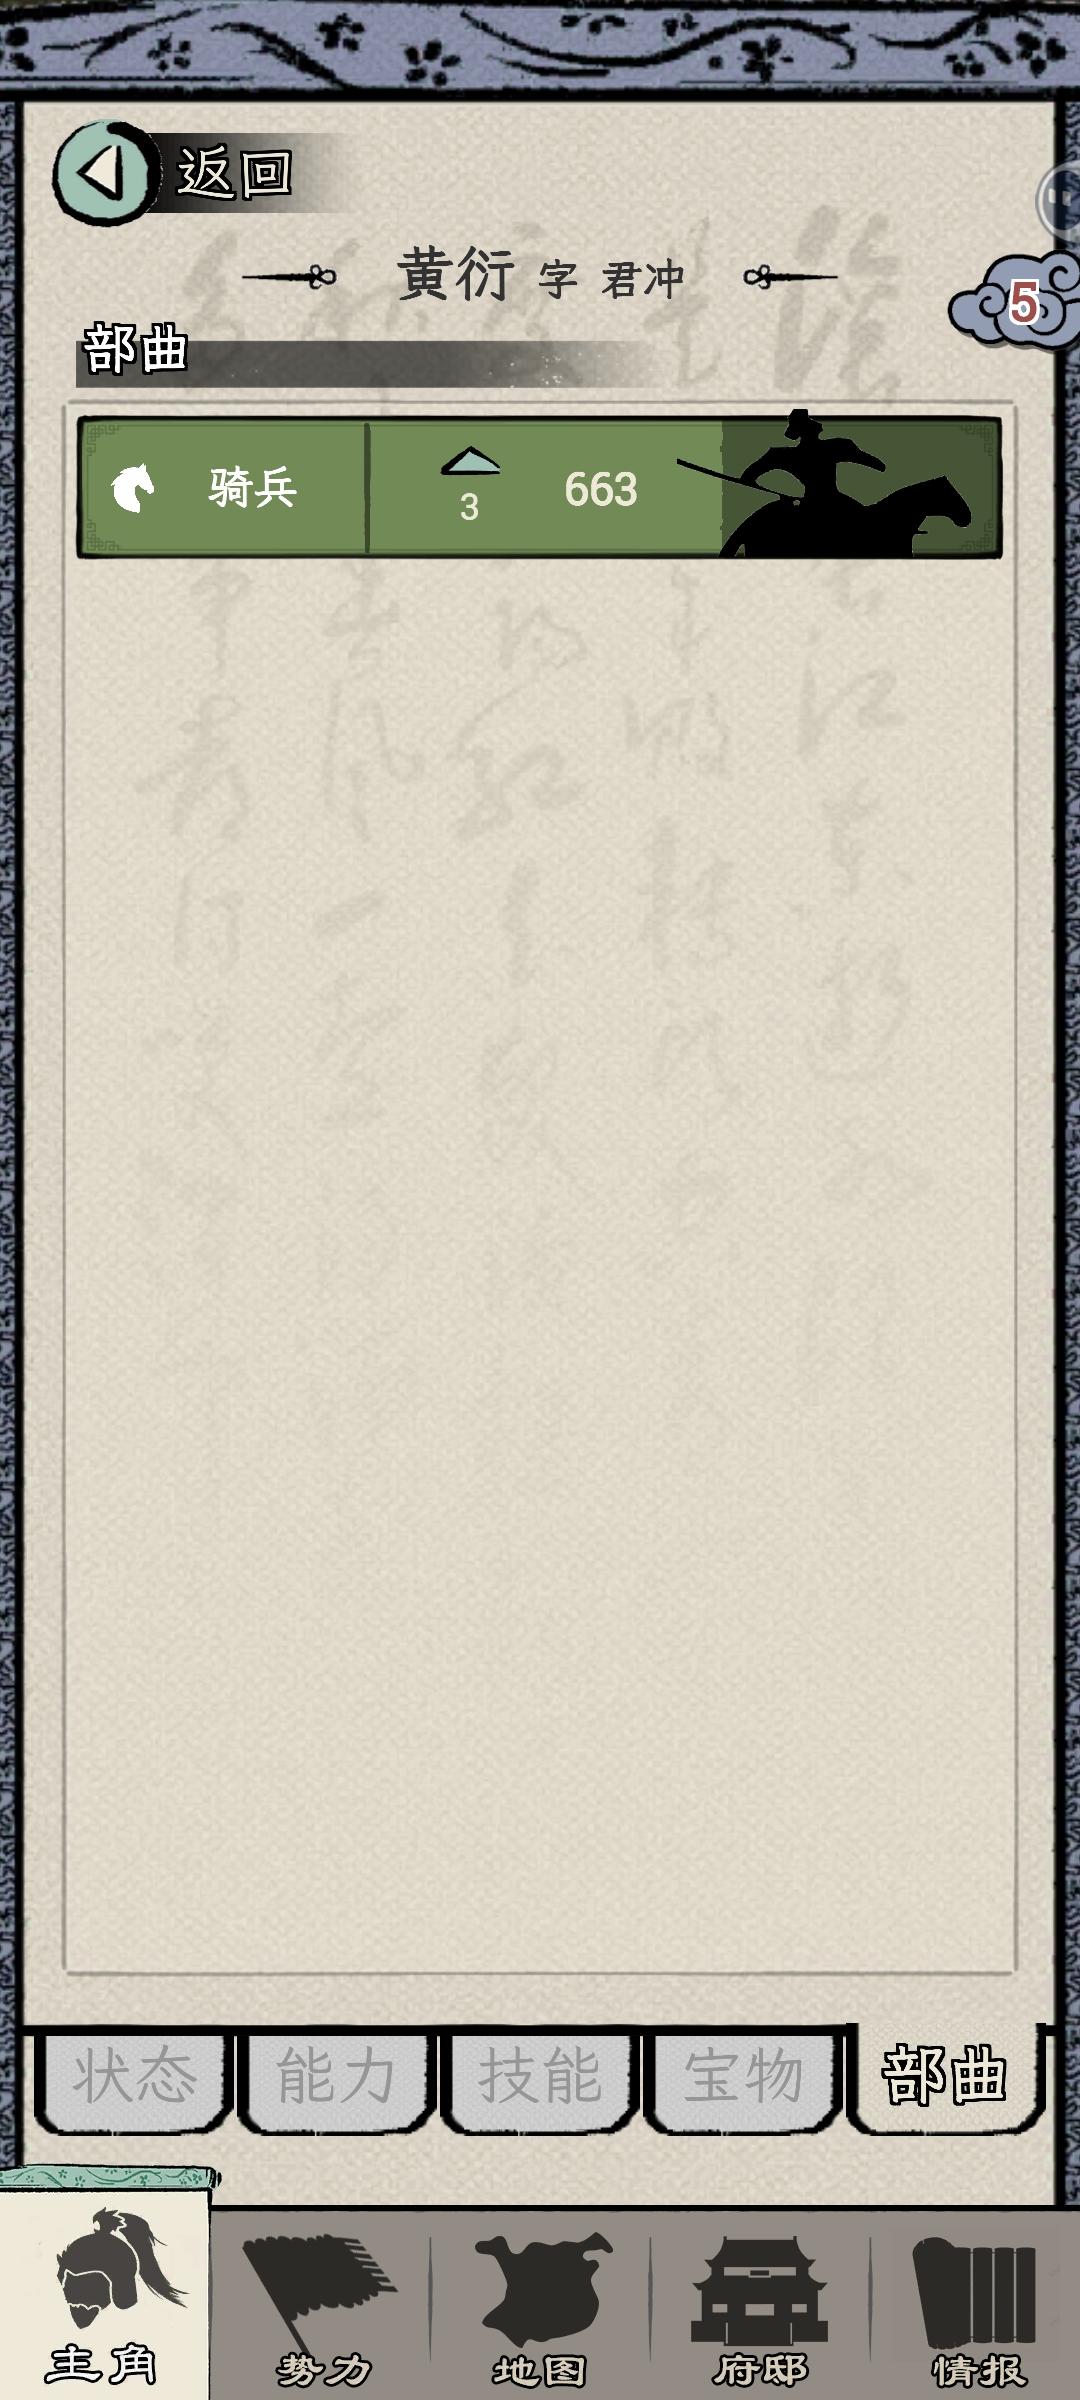 返回
黄衍 字 君冲
5
部曲
骑兵 3 663
状态 能力 技能 宝物 部曲
主角 势力 地图 府邸 情报